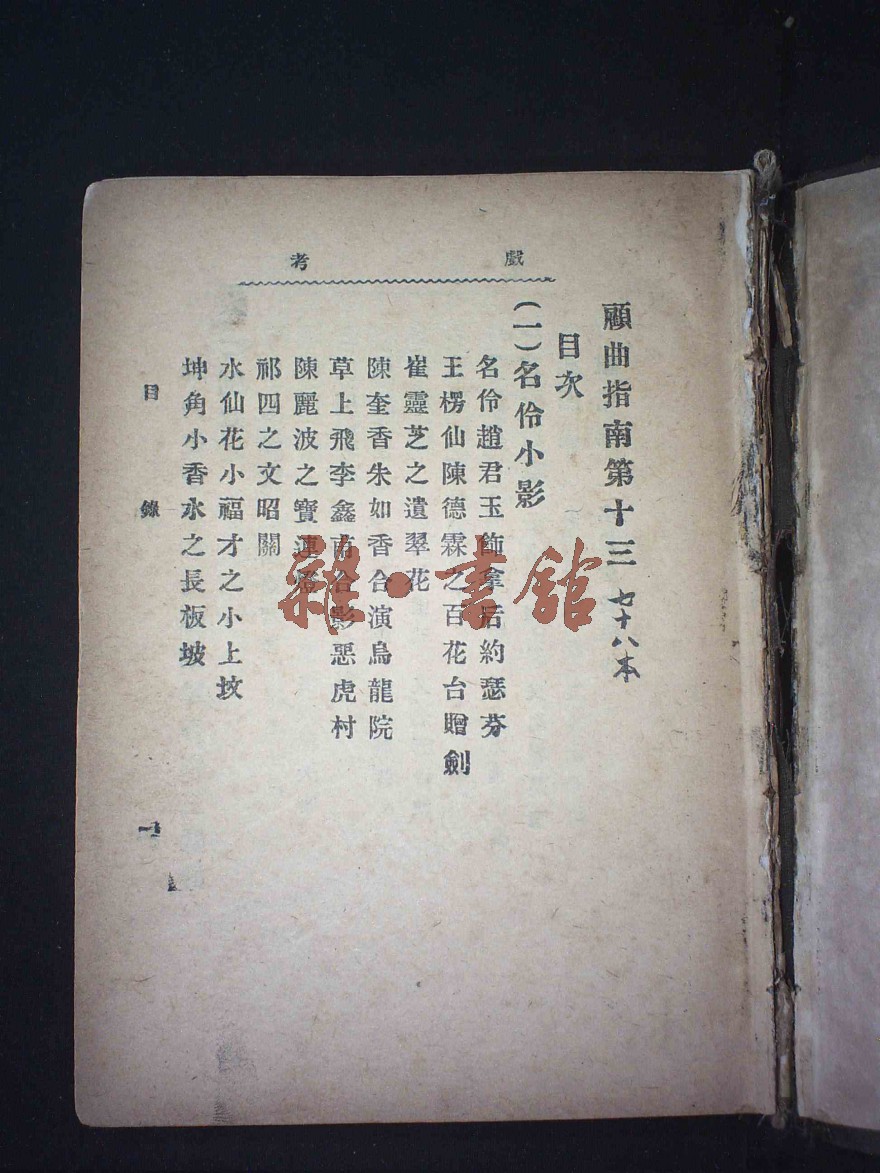 戲考
顧曲指南第十三 七十八本
目次
(一)名伶小影
名伶趙君玉飾拿后約瑟芬
王楞仙陳德霖之百花台贈劍
崔靈芝之遺翠花
陳奎香朱如香合演烏龍院
草上飛李鑫甫合影惡虎村
陳麗波之寶蓮燈
祁四之文昭關
水仙花小福才之小上坟
坤角小香水之長板坡
目錄
一
雜·書館